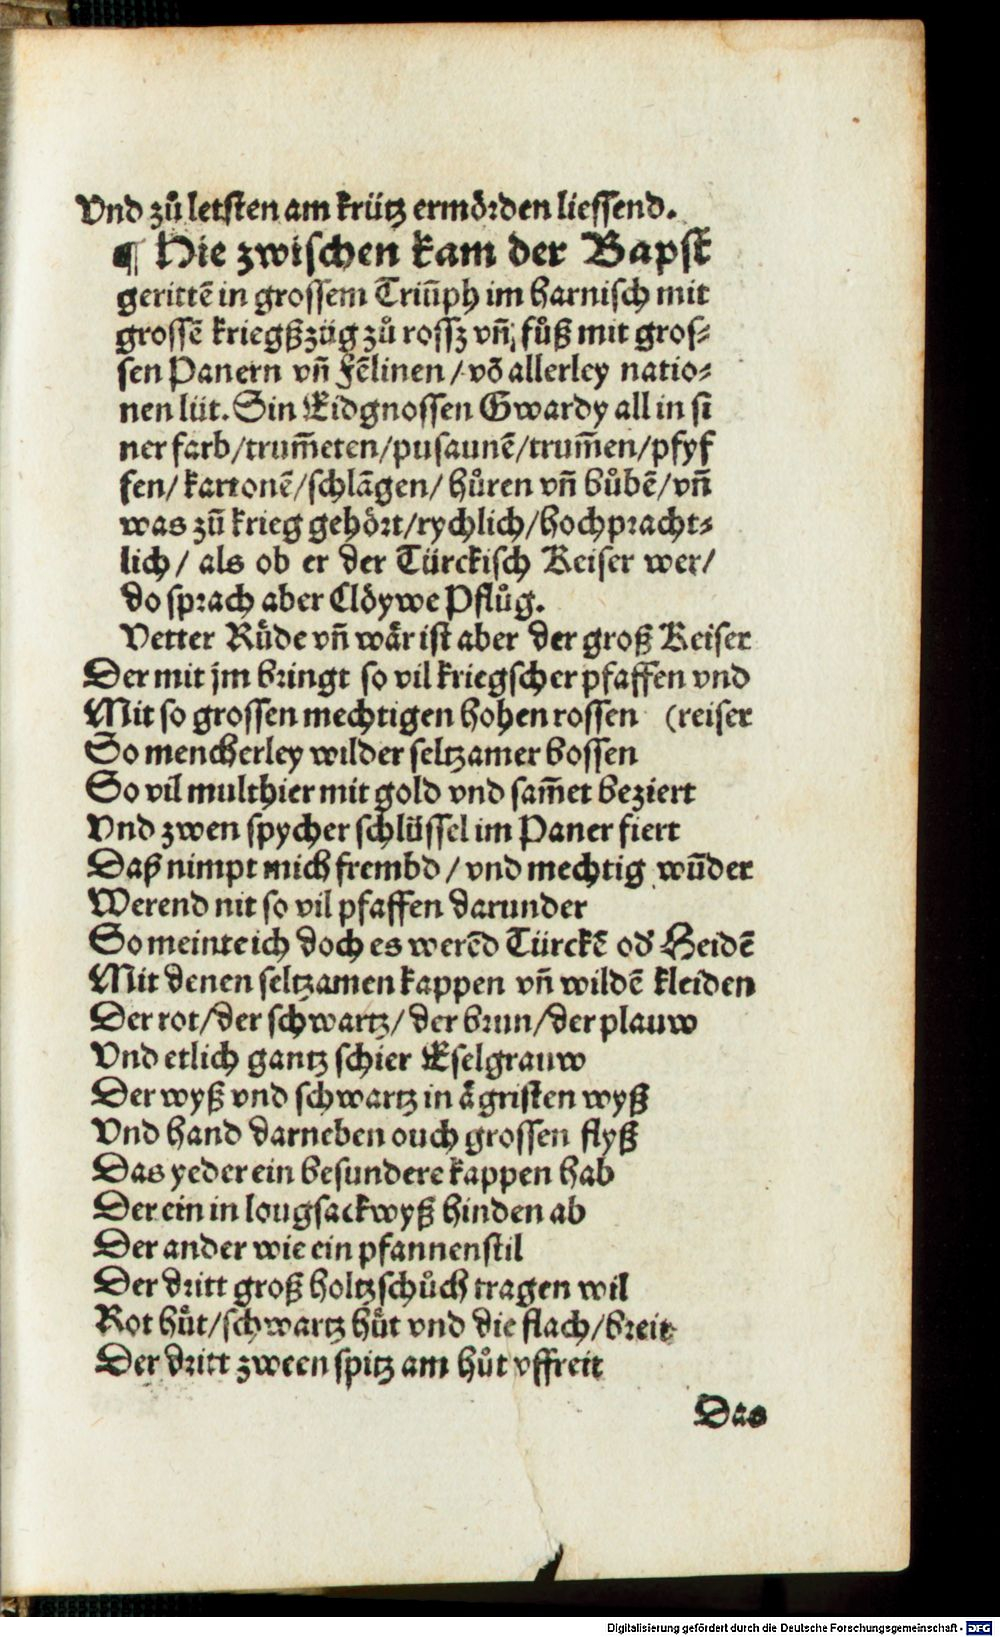 Vnd zů letsten am krütz ermörden liessend.
¶ Hie zwischen kam der Bapst
gerittē in grossem Triūph im harnisch mit
grossē kriegßzüg zů rossz vñ fůß mit gros⸗
sen Panern vñ Fēlinen / vō allerley natio⸗
nen lüt. Sin Eidgnossen Gwardy all in si
ner farb / trum̄eten / pusaunē / trum̄en / pfyf
fen / kartonē / schlāgen / hůren vñ bůbē / vñ
was zů krieg gehört / rychlich / hochpracht⸗
lich / als ob er der Türckisch Keiser wer /
do sprach aber Clöywe Pflůg.
Vetter Růde vñ wär ist aber der groß Keiser
Der mit jm bringt so vil kriegscher pfaffen vnd
Mit so grossen mechtigen hohen rossen (reiser
So mencherley wilder seltzamer bossen
So vil multhier mit gold vnd sam̄et beziert
Vnd zwen spycher schlüssel im Paner fiert
Daß nimpt mich frembd / vnd mechtig wūder
Werend nit so vil pfaffen darunder
So meinte ich doch es werēd Türckē od' Heidē
Mit denen seltzamen kappen vñ wildē kleiden
Der rot / der schwartz / der brun / der plauw
Vnd etlich gantz schier Eselgrauw
Der wyß vnd schwartz in ägristen wyß
Vnd hand darneben ouch grossen flyß
Das yeder ein besundere kappen hab
Der ein in lougsackwyß hinden ab
Der ander wie ein pfannenstil
Der dritt groß holtzschůch tragen wil
Rot hůt / schwartz hůt vnd die flach / breit
Der dritt zween spitz am hůt vffreit
Das
Digitalisierung gefördert durch die Deutsche Forschungsgemeinschaft - DFG